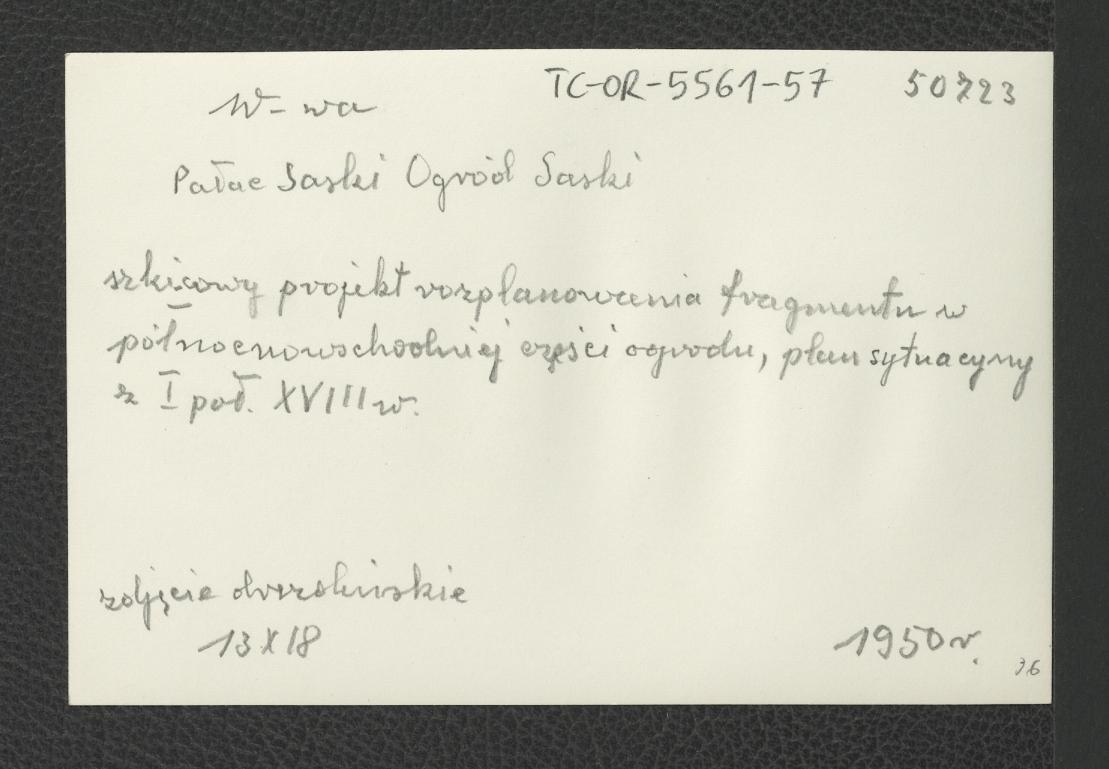 W-wa TC-OR-5561-57 50723
Pałac Saski Ogród Saski
szkicowy projekt rozplanowania fragmentu w
północnowschodniej części ogrodu, plan sytuacyjny
z I poł. XVIII w.
zdjęcie drezdeńskie
13 X 18 1950 r.
36